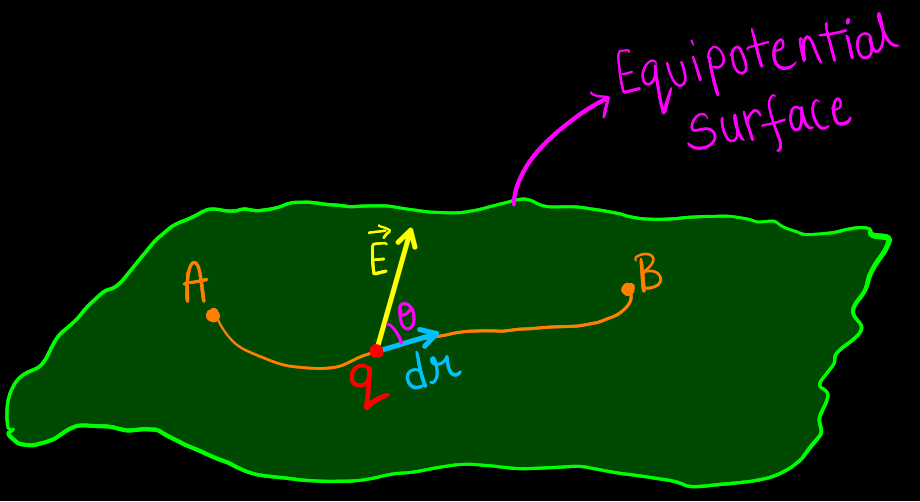 Equipotential
surface
E⃗
A
B
θ
q
dr